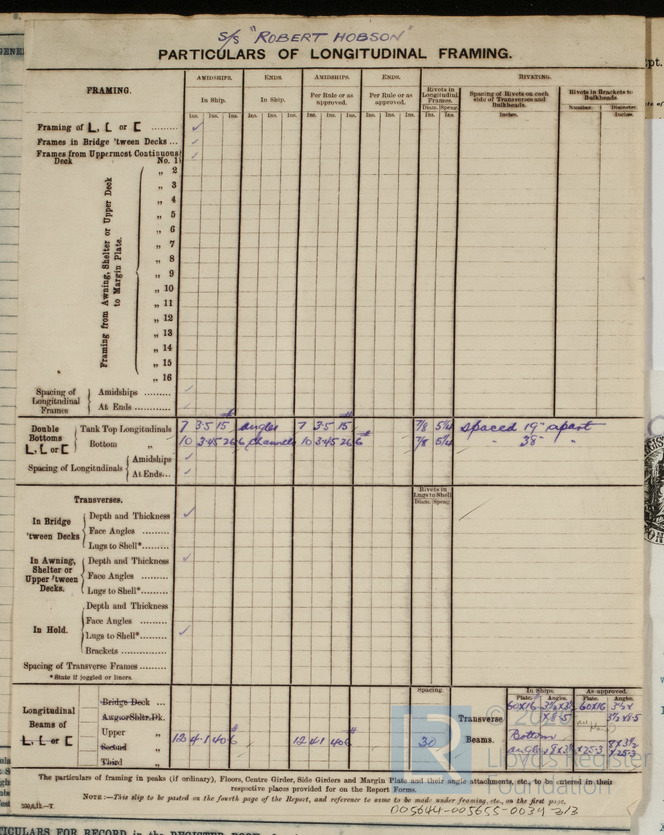 S/S "ROBERT HOBSON"
PARTICULARS OF LONGITUDINAL FRAMING.
FRAMING.
AMIDSHIPS. ENDS. AMIDSHIPS. ENDS. RIVETING.
In Ship. In Ship. Per Rule or as approved. Per Rule or as approved.
Rivets in Longitudinal Frames. Spacing of Rivets on each side of Transverses and Bulkheads. Rivets in Brackets to Bulkheads.
Diam. Spcng. Number. Diameter.
Ins. Ins. Ins. Ins. Ins. Ins. Ins. Ins. Ins. Ins. Ins. Ins. Ins. Ins. Inches. Inches.
Framing of L, [ or [ ......... ✓
Frames in Bridge 'tween Decks ... ✓
Frames from Uppermost Continuous Deck No. 1 ✓
Framing from Awning, Shelter or Upper Deck to Margin Plate.
„ 2
„ 3
„ 4
„ 5
„ 6
„ 7
„ 8
„ 9
„ 10
„ 11
„ 12
„ 13
„ 14
„ 15
„ 16
Spacing of Longitudinal Frames
Amidships ......... ✓
At Ends ......... ✓
Double Bottoms L, [ or [
Tank Top Longitudinals 7 3·5 15 angles 7 3·5 15 7/8 5 1/4 spaced 19" apart
Bottom „ 10 3·45 26 6 channels 10 3·45 26 6 7/8 5 1/4 " 38" "
Spacing of Longitudinals
Amidships ✓
At Ends... ✓
Transverses.
Rivets in Lugs to Shell
Diam. Spcng.
In Bridge 'tween Decks
Depth and Thickness ✓
Face Angles .........
Lugs to Shell*.........
In Awning, Shelter or Upper 'tween Decks.
Depth and Thickness ✓
Face Angles .........
Lugs to Shell*.........
In Hold.
Depth and Thickness
Face Angles .........
Lugs to Shell*......... ✓
Brackets .........
Spacing of Transverse Frames ......
* State if joggled or liners.
Longitudinal Beams of L, [ or [
Bridge Deck ...
Awng or Shltr. Dk.
Upper „ 12 4·1 40·6 12 4·1 40·6 30
Second „
Third „
Spacing.
Transverse Beams.
In Ships. As approved.
Plate. Angles. Plate. Angles.
60X16 3½X3½ X8·5 60X16 3½X 3½X8·5
Bottom
angles 8X3½ X25·3 8X3½ X25·3
The particulars of framing in peaks (if ordinary), Floors, Centre Girder, Side Girders and Margin Plate and their angle attachments, etc., to be entered in their
respective places provided for on the Report Forms.
NOTE:—This slip to be posted on the fourth page of the Report, and reference to same to be made under framing, etc., on the first page.
005644-005655-0034 2/3
Lloyd's Register
Foundation
PARTICULARS FOR RECORD in the REGISTER BOOK